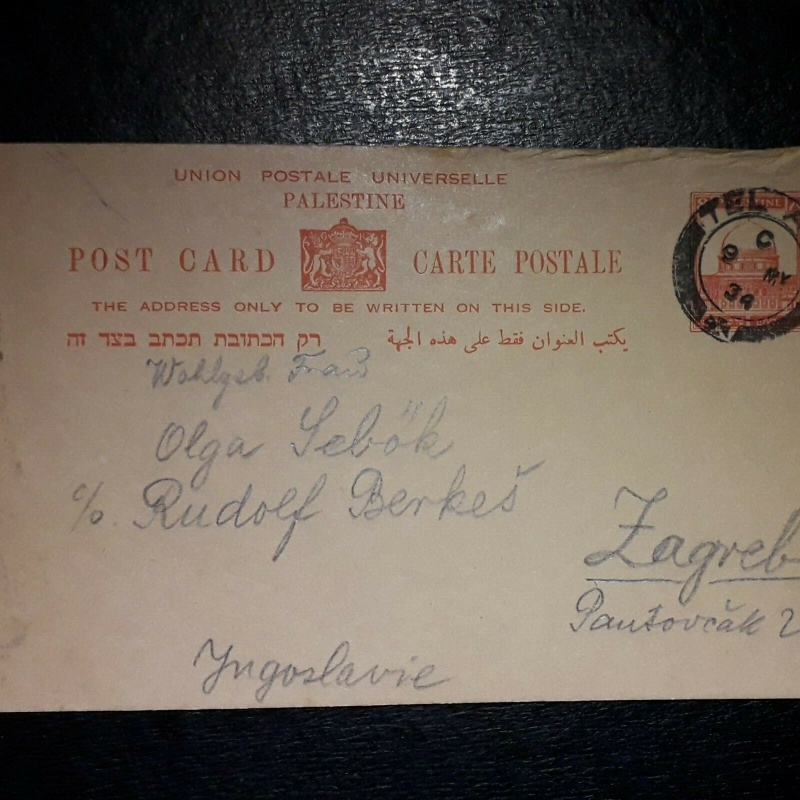 UNION POSTALE UNIVERSELLE
PALESTINE
POST CARD CARTE POSTALE
THE ADDRESS ONLY TO BE WRITTEN ON THIS SIDE.
רק הכתובת תכתב בצד זה يكتب العنوان فقط على هذه الجهة
TEL A
C
9 MY
34
Wohlgeb. Frau
Olga Sebök
c/o. Rudolf Berkeš
Zagreb
Pantovčak 2
Jugoslavie